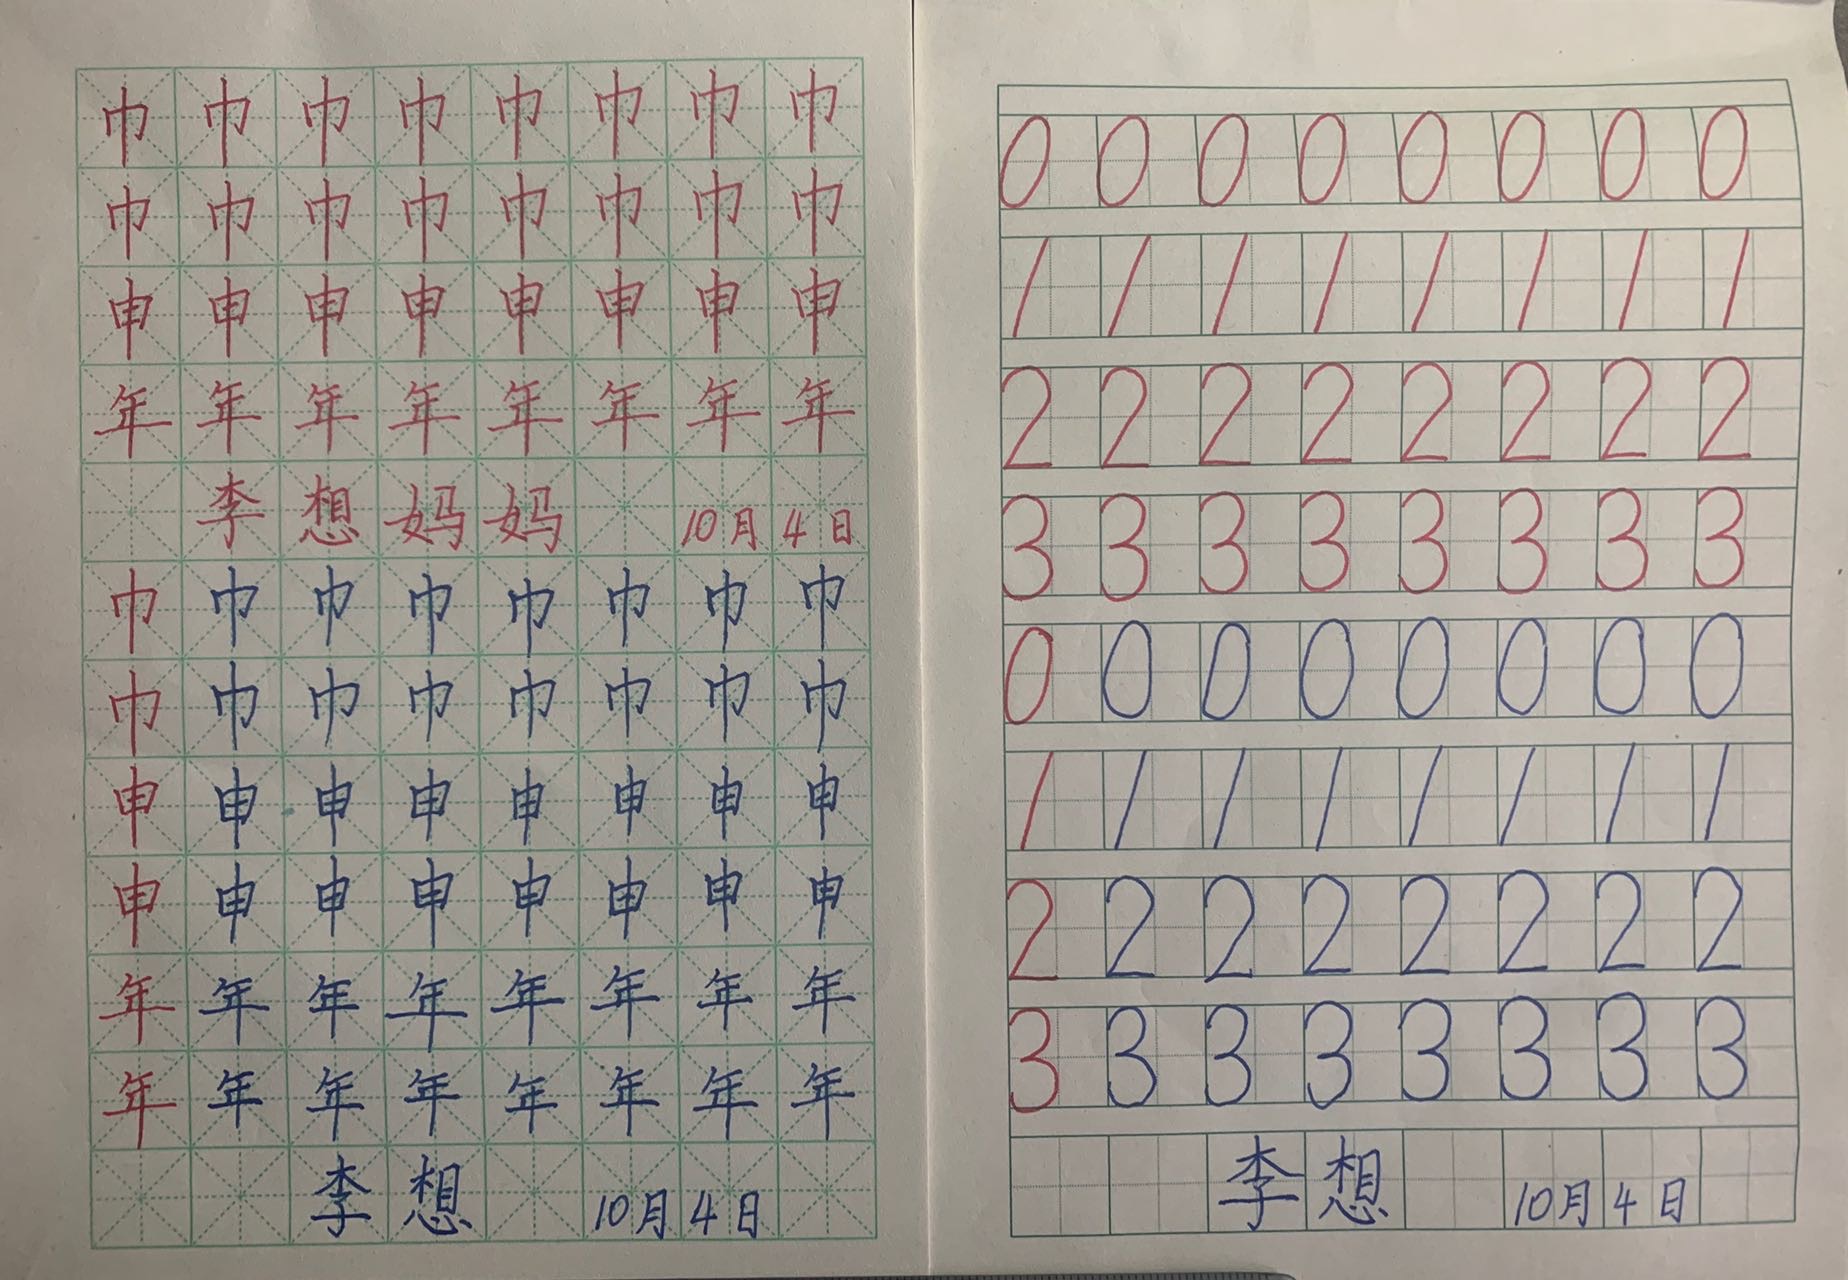 巾巾巾巾巾巾巾巾
巾巾巾巾巾巾巾巾
申申申申申申申申
年年年年年年年年
李想妈妈 10月4日
巾巾巾巾巾巾巾巾
巾巾巾巾巾巾巾巾
申申申申申申申申
申申申申申申申申
年年年年年年年年
年年年年年年年年
李想 10月4日
0 0 0 0 0 0 0 0
1 1 1 1 1 1 1 1
2 2 2 2 2 2 2 2
3 3 3 3 3 3 3 3
0 0 0 0 0 0 0 0
1 1 1 1 1 1 1 1
2 2 2 2 2 2 2 2
3 3 3 3 3 3 3 3
李想 10月4日